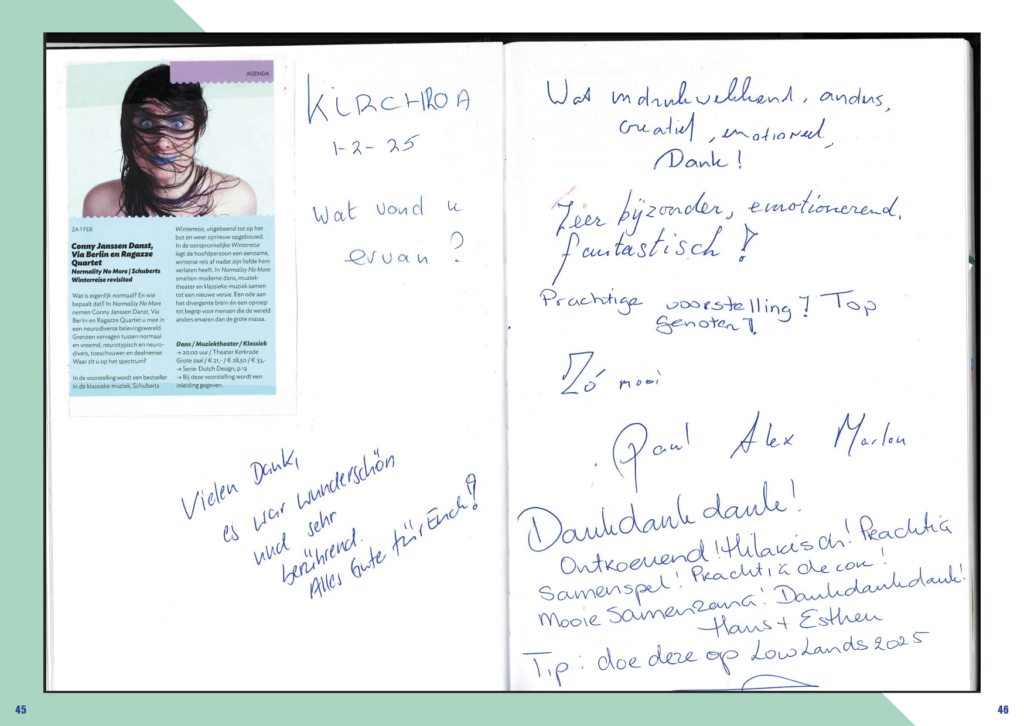 AGENDA
ZA 1 FEB
Conny Janssen Danst,
Via Berlin en Ragazze
Quartet
Normality No More | Schuberts
Winterreise revisited
Wat is eigenlijk normaal? En wie
bepaalt dat? In Normality No More
nemen Conny Janssen Danst, Via
Berlin en Ragazze Quartet u mee in
een neurodiverse belevingswereld.
Grenzen vervagen tussen normaal
en vreemd, neurotypisch en neuro-
divers, toeschouwer en deelnemer.
Waar zit u op het spectrum?
In de voorstelling wordt een bestseller
in de klassieke muziek, Schuberts
Winterreise, uitgebeend tot op het
bot en weer opnieuw opgebouwd.
In de oorspronkelijke Winterreise
legt de hoofdpersoon een eenzame,
winterse reis af nadat zijn liefde hem
verlaten heeft. In Normality No More
smelten moderne dans, muziek-
theater en klassieke muziek samen
tot een nieuwe versie. Een ode aan
het divergente brein én een oproep
tot begrip voor mensen die de wereld
anders ervaren dan de grote massa.
Dans / Muziektheater / Klassiek
→ 20:00 uur / Theater Kerkrade
Grote zaal / € 21,- / € 28,50 / € 33,-
→ Serie: Dutch Design, p.19
→ Bij deze voorstelling wordt een
inleiding gegeven.
KIRCHROA
1-2-25
Wat vond u
ervan?
Vielen Dank,
es war wunderschön
und sehr
berührend.
Alles Gute für Euch!
Wat indrukwekkend, anders,
creatief, emotioneel,
Dank!
Zeer bijzonder, emotionerend,
fantastisch!
Prachtige voorstelling! Top
genoten!
Zó mooi
Paul Alex Marlon
Dankdankdank!
Ontroerend! Hilarisch! Prachtig
Samenspel! Prachtig decor!
Mooie Samenzang! Dankdankdank!
Hans + Esther
Tip: doe deze op Lowlands 2025
45
46